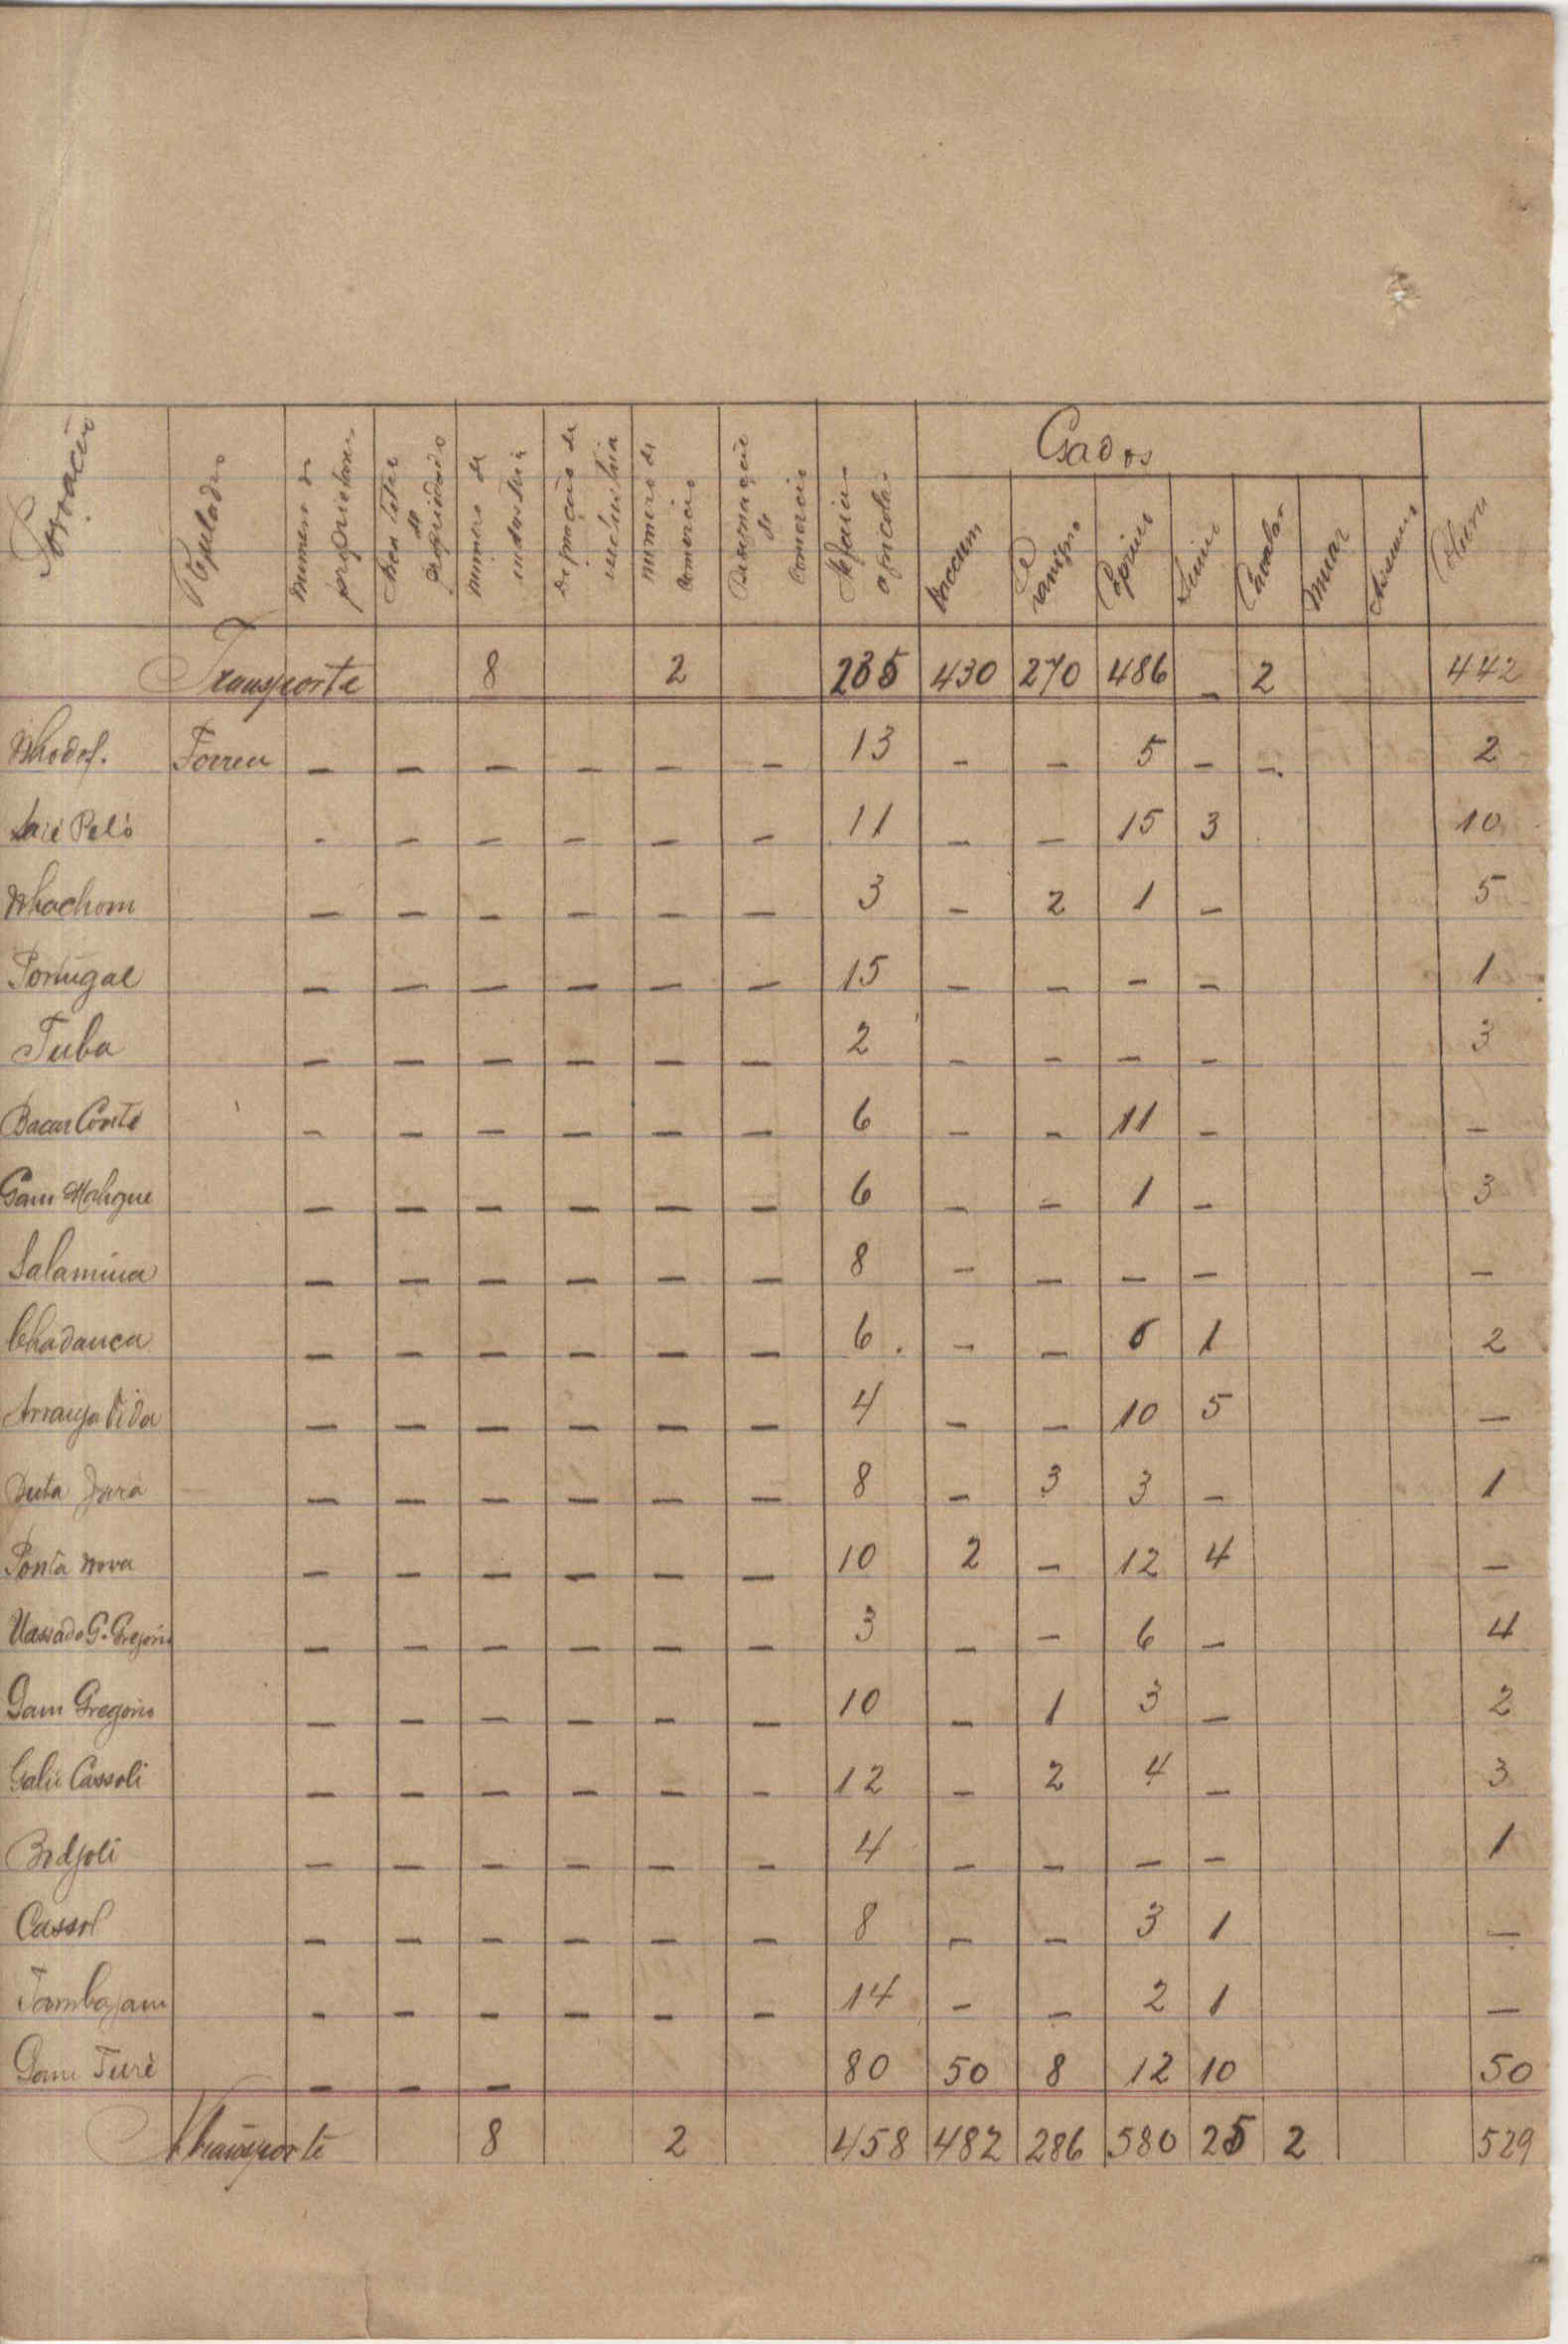 Povoação Regulado numero de proprietarios Area total da propriedade numero de industria Designação de industria numero de comercio Designação do Comercio Alfaias agricolas Gados
Vaccum Lanigero Caprino Suino Cavalar Muar Asinino
Transporte 8 2 235 430 270 486 – 2 442
Nhodof. Forrea – – – – – – 13 – – 5 – – 2
Laié Peló – – – – – – 11 – – 15 3 10
Nhachom – – – – – – 3 – 2 1 – 5
Portugal – – – – – – 15 – – – – 1
Tuba – – – – – – 2 – – – – 3
Bacar Conté – – – – – – 6 – – 11 – –
Gam – – – – – – 6 – – 1 – 3
Salamina – – – – – – 8 – – – – –
Chadanca – – – – – – 6 – – 6 1 2
Arranja Vida – – – – – – 4 – – 10 5 –
Duta Jará – – – – – – 8 – 3 3 – 1
Ponta nova – – – – – – 10 2 – 12 4 –
Uassado G. Gregorio – – – – – – 3 – – 6 – 4
Gam Gregorio – – – – – – 10 – 1 3 – 2
Galié Cassoli – – – – – – 12 – 2 4 – 3
Bodjoli – – – – – – 4 – – – – 1
Cassol – – – – – – 8 – – 3 1 –
Tambajam – – – – – – 14 – – 2 1 –
Gam Turé – – – 80 50 8 12 10 50
Transporte 8 2 458 482 286 580 25 2 529